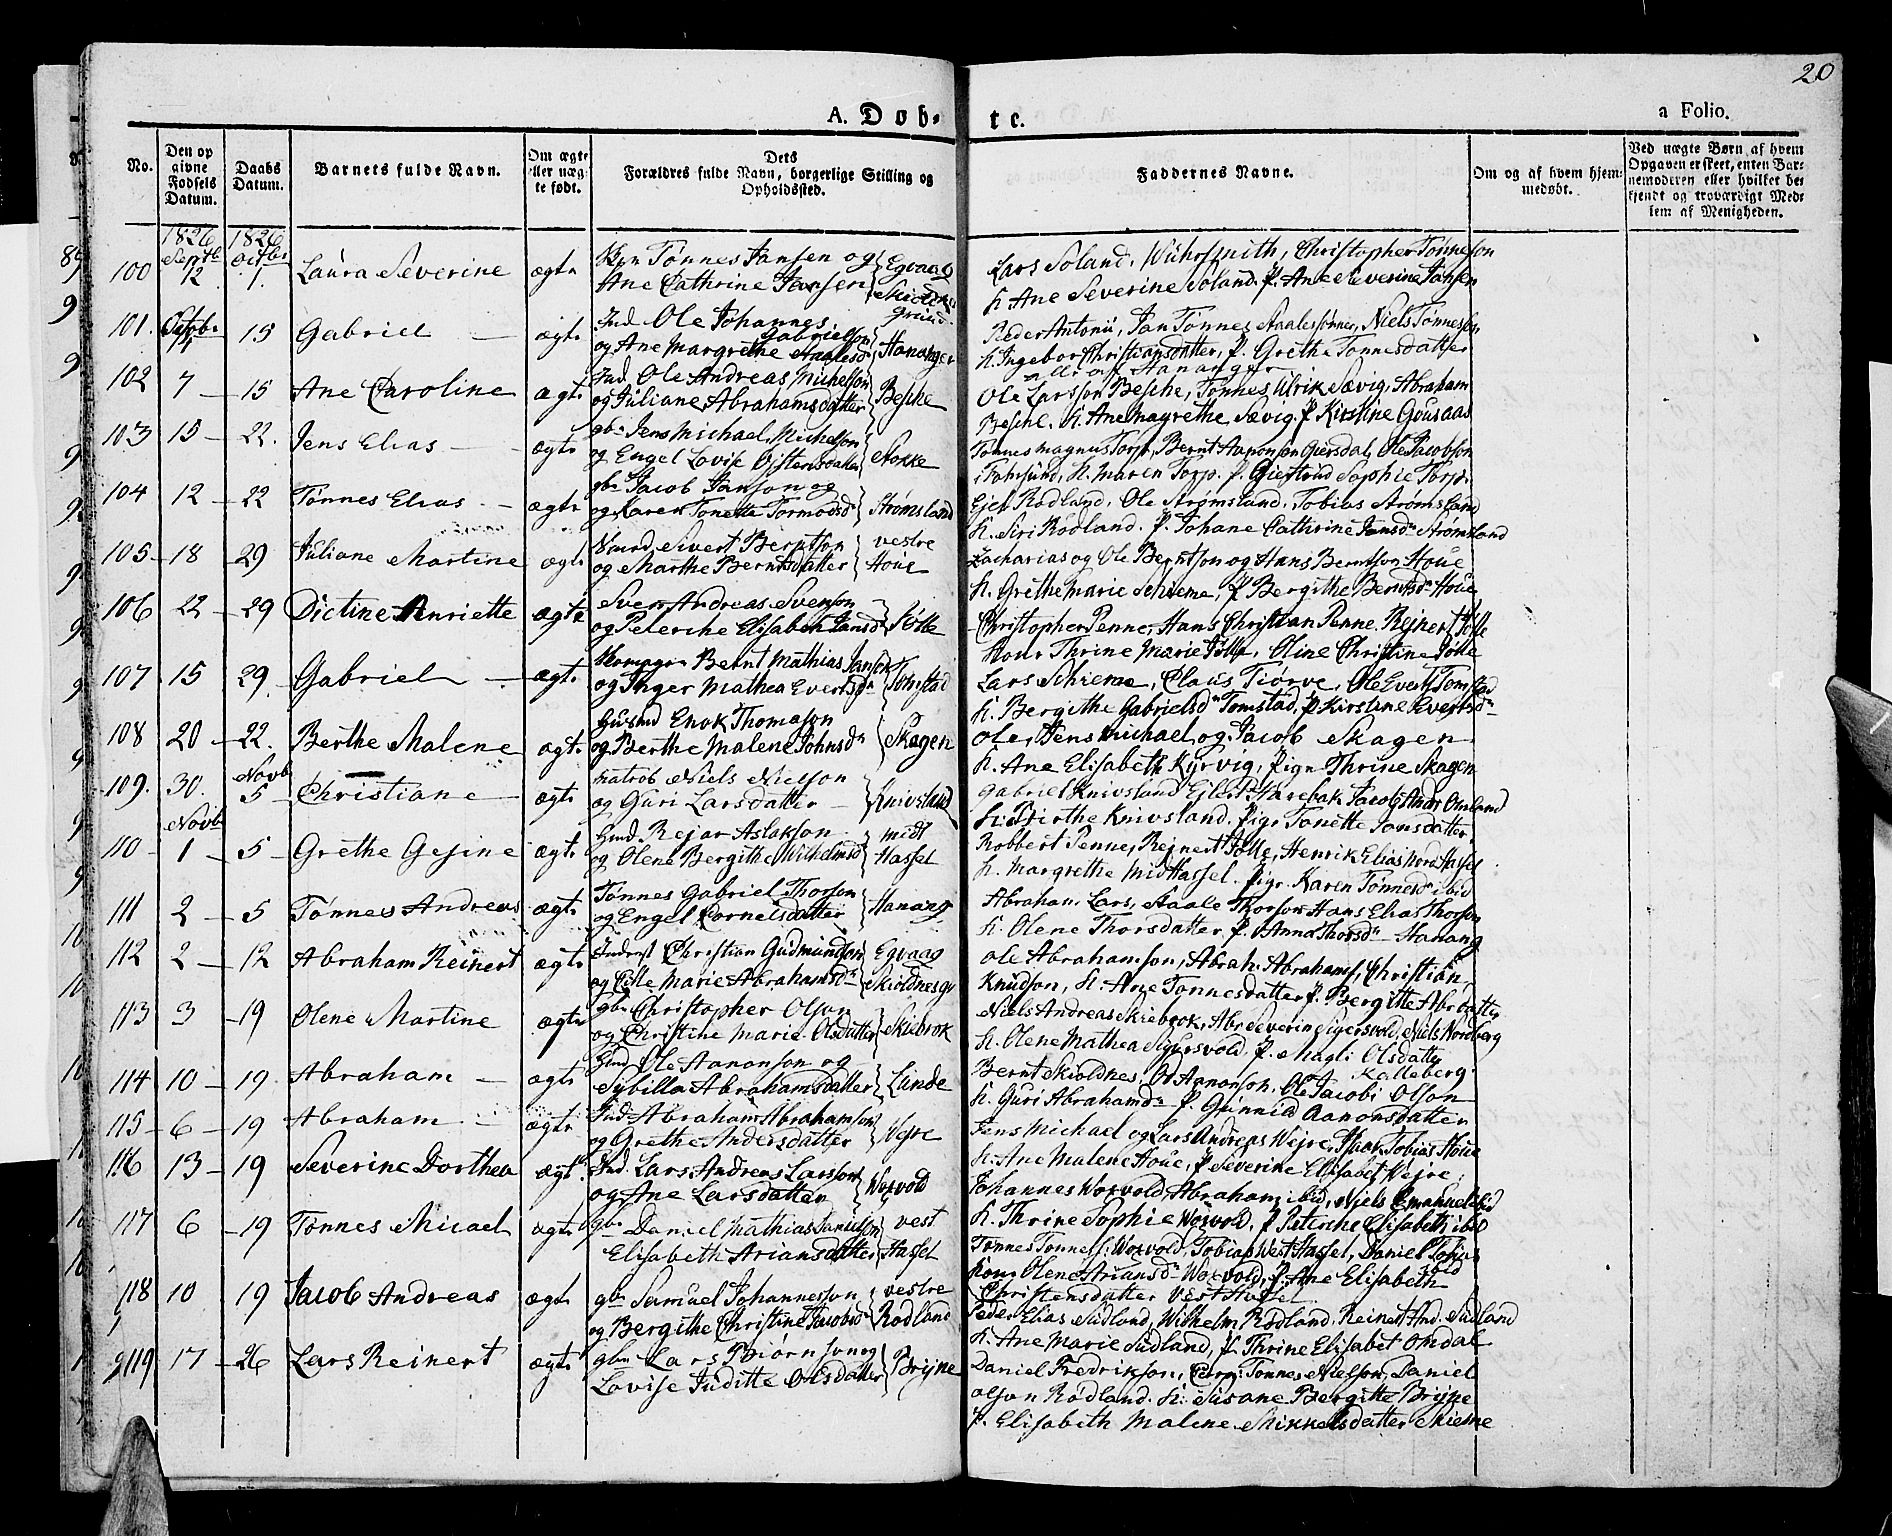 20
A. Døb-
te.
a Folio.
No.
Den op
givne
Fødsels
Datum.
Daabs
Datum.
Barnets fulde Navn.
Om ægte
eller uæg-
te født.
Dets
Forældres fulde Navn, borgerlige Stilling og
Opholdssted.
Faddernes Navne.
Om og af hvem hjem-
medøbt.
Ved uægte Børn af hvem
Opgaven er skeet, enten Bar-
nemoderen eller hvilket be-
kjendt og troværdigt Med-
lem af Menigheden.
1826 1826
100 Septbr 12 Octbr 1. Laura Severine ægte Tønnes Jansen og Egvaag
Ane Cathrine Jansen
Lars Soland, Christopher Tønneson
K. Ane Severine Soland. P. Ane Severine Jansen
101. Octobr 15 Gabriel — ægte Ind Ole Johannes Gabrielson
og Ane Margrethe Aalesd Hananger
Peder Antonii, Jan Tønnes Aalesønner, Niels Tønneson
K. Ingebor Christiansdatter, P. Grethe Tønnesdatter
alle af Hananger
102 7 — 15 Ane Caroline ægte Ind Ole Andreas Michelson
og Juliane Abrahamsdatter Beshe
Ole Larsson Beshe, Tønnes Ulrik Sævig, Abraham
Beshe. K. Ane Magrethe Sævig. P. Kirstine Gousaas
103 15 — 22. Jens Elias — ægte gbr Jens Michael Michelson
og Engel Lovise Ojstensdatter Stokke
Tønnes Magnus Torp, Bernt Aanonson Giersdal, Ole Jacobson
i Fahrsund, K. Maren Torp. P. Giertrud Sophie Torp.
104 12 — 22 Tønnes Elias — ægte gbr Jacob Janson og
og Karen Tonette Tormodsd Strømsland
Ejel Rødland, Ole Strømsland, Tobias Strømsland
K. Siri Rødland. P. Johane Cathrine Jansdr Strømsland
105 — 18 — 29 Juliane Martine ægte Sivert Berntson vestre
og Marthe Berntsdatter Houe
Zacharias og Ole Berntson og Hans Berntson Houe
K. Grethe Marie Schieme, P. Bergithe Berntsd Houe
106 22 — 29 Dictine Henriette ægte Sven Andreas Svenson
og Peterche Elisabeth Jansd Jølle
Christopher Penne, Hans Christian Penne, Rejnert Jølle
Kone Thrine Marie Jølle, Oline Christine Jølle
107 15 29 Gabriel — ægte Bernt Mathias Janson
og Inger Mathea Evertsdr Tomstad
Lars Schieme, Claus Tiørve, Ole Evert Tomstad
K. Bergithe Gabrielsdr Tomstad, P. Kirstine Evertsdr
108 20 — 22. Berthe Malene ægte Enok Thomason
og Berthe Malene Johnsdr Skagen
Ole, Jens Michael og Jacob Skagen
K. Ane Elisabeth Kyrvig, Pige Thrine Skagen
109. 30. Novb 5 — Christiane — ægte Niels Nielson
og Guri Larsdatter — Knivsland
Gabriel Knivsland Ejlert Harebak Jacob Andr Omland
K. Birthe Knivsland. Pige Tonette Jonsdatter
110 — Novb 1 — 5 — Grethe Gesine ægte Gmd Rejar Aslakson midt
og Olene Bergithe Wilhelmsd Hassel
Robbert Penne, Rejnert Jølle, Henrik Elias Nord Hassel
K. Margrethe Mid Hassel. Pige Karen Tønnesdr ibid
111 2 — 5 Tønnes Andreas ægte Tønnes Gabriel Thorson
og Engel Cornelsdatter Hanang
Abraham, Lars, Aaale Thorson Hans Elias Thorson
K. Olene Thorsdatter P. Anna Thorsdr Hanang
112 2 — 12 Abraham Reinert ægte Inderst Christian Gudmundson Egvaag
og Cille Marie Abrahamsdr Skioldnesgr
Ole Abrahamson, Abrah. Abrahams, Christian
Knudson, K. Ane Tønnesdatter P. Bergitte Abrdatter
113 3 — 19 Olene Martine ægte gbr Christopher Olson
og Christine Marie Olsdatter Skiebrok
Niels Andreas Skiebrok, Abr Severin Sigersvold, Niels Nordberg
K. Olene Mathea Sigersvold, P. Magli Olsdatter
Kalleberg.
114 10 — 19. Abraham — ægte Gmd Ole Aanonson og
Sybilla Abrahamsdatter Lunde
Bernt Skioldnes, Ol Aanonson, Ole Jacobi Olson
K. Guri Abrahamdr P. Gunnild Aanonsdatter
115 — 6 — 19 Abraham — ægte Ind Abraham Abrahamson
og Grethe Andersdatter Vejre
Jens Michael og Lars Andreas Vejre, Isak Tobias Houe
K. Ane Malene Houe, P. Severine Elisabet Vejre
116 13 — 19 Severine Dorthea ægte Ind. Lars Andreas Larsson
og Ane Larsdatter Woxvold
Johannes Woxvold, Abraham ibid, Niels Emanuel ibid
K. Thrine Sophie Woxvold, P. Peterche Elisabeth ibid
117 6 — 19 Tønnes Micael ægte gbr Daniel Mathias Danielson vest
Elisabeth Ariansdatter Hassel
Tønnes Tønnes. Woxvold, Tobias West Hassel, Daniel Tobias
ibid
Kone Olene Ariansdr Woxvold, P. Ane Elisabeth
Christensdatter Vest Hassel
118 10 19 Jacob Andreas ægte gbr Samuel Johannesson vestre
og Bergithe Christine Jacobsd Rødland
Peder Elias Sudland, Wilhelm Rødland, Reinert And. Sudland
K. Ane Marie Sudland, P. Thrine Elisabet Omdal
119 17 — 26 Lars Reinert ægte gbm Lars Biørnson og
Lovise Juditte Olsdatter Bryne
Daniel Fredrikson, Tønnes Nielson, Daniel
Olson Rødland. K. Susane Bergitte Bryne
P. Elisabeth Malene Mikkelsdatter Skieme